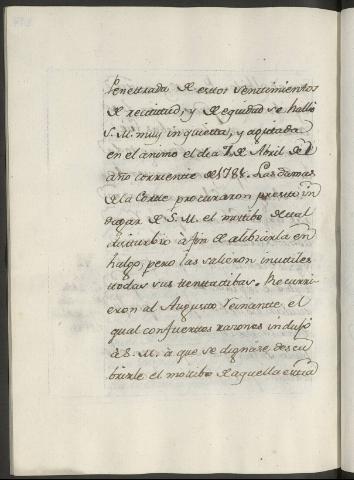 Penetrada de estos sentimientos
de rectitud, y de equidad se halló
S. M. muy inquieta, y agitada
en el animo el dia 7 de Abril del
año corriente de 1788. Las damas
de la Corte procuraron presto in
dagar de S. M. el motibo de tal
disturbio à fin de alibiarla en
halgo, pero las salieron inutiles
todas sus tentactibas. Recurri
eron al Augusto Reinante, el
qual con fuertes razones indujó
à S. M. à que se dignáse descu
brirle el mottibo de aquella